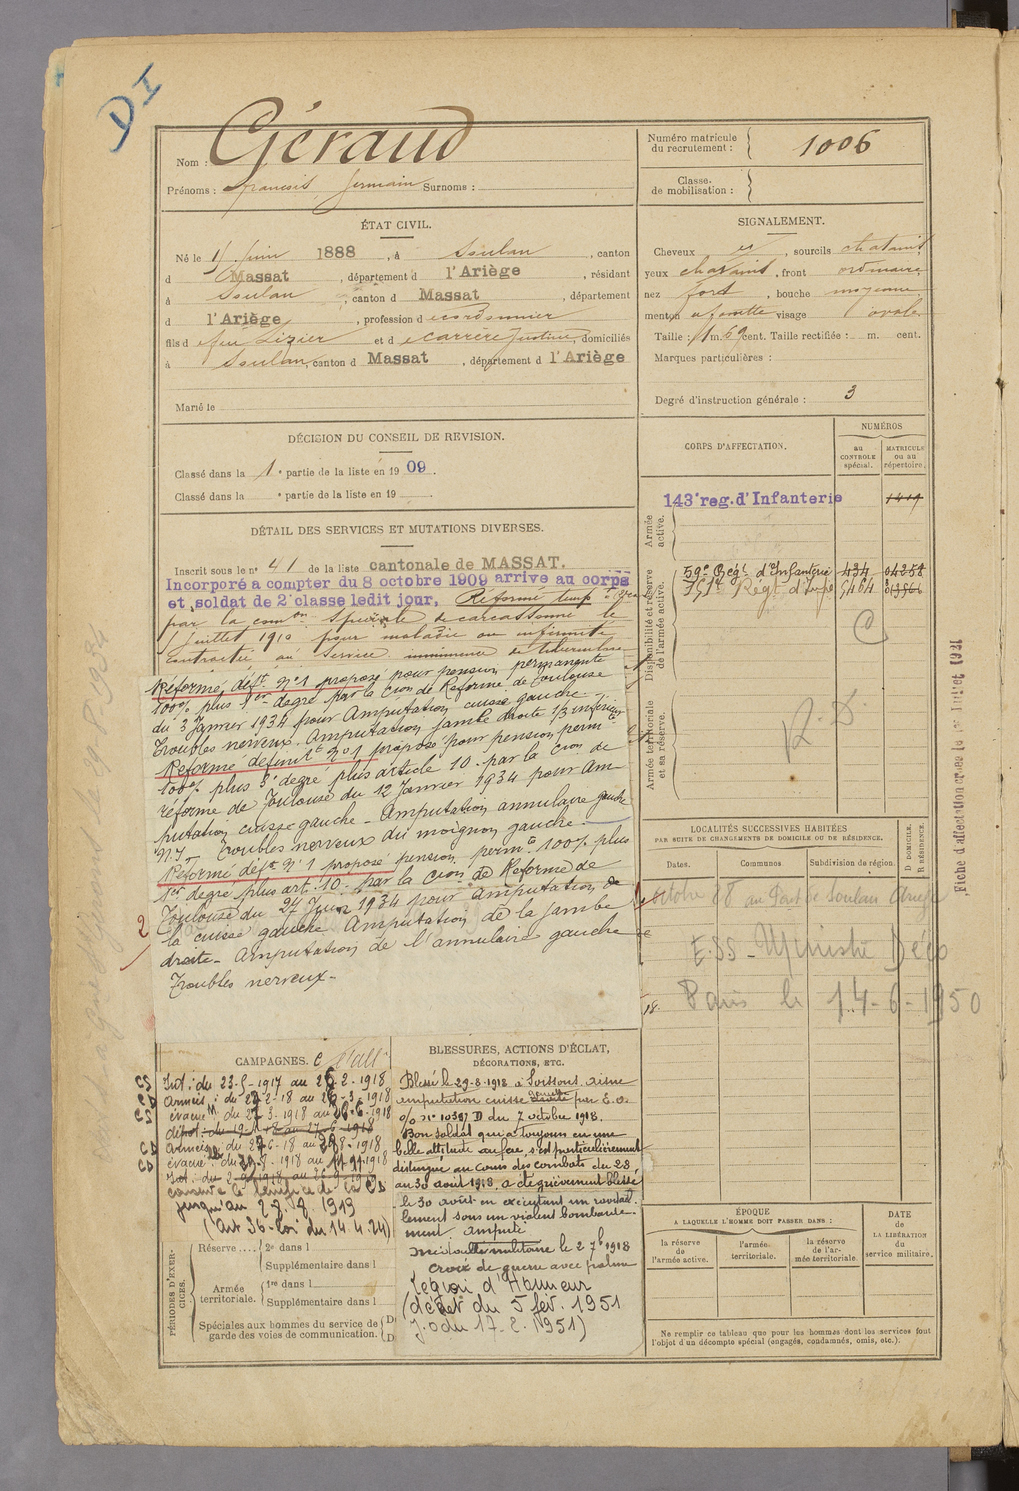 DI
Nom : Géraud
Prénoms : François Germain Surnoms :
Numéro matricule du recrutement : 1006
Classe de mobilisation :
ÉTAT CIVIL.
Né le Juin 1888, à Soulan, canton
d Massat, département d l'Ariège, résidant
à Soulan, canton d Massat, département
d l'Ariège, profession d cordonnier
fils d feu Lizier et d Carrère Justine, domiciliés
à Soulan, canton d Massat, département d l'Ariège
Marié le
SIGNALEMENT.
Cheveux et, sourcils chatains
yeux chatains, front ordinaire
nez fort, bouche moyenne
menton à fossette visage ovale
Taille : 1 m. 69 cent. Taille rectifiée : m. cent.
Marques particulières :
Degré d'instruction générale : 3
DÉCISION DU CONSEIL DE REVISION.
Classé dans la 1e partie de la liste en 1909.
Classé dans la e partie de la liste en 19 .
DÉTAIL DES SERVICES ET MUTATIONS DIVERSES.
Inscrit sous le n° 41 de la liste cantonale de MASSAT.
Incorporé a compter du 8 octobre 1909 arrive au corps
et soldat de 2e classe ledit jour, Réformé temp
par la comon Spéciale de Carcassonne le
Juillet 1910 pour maladie ou infirmité
contractée au service
Réformé déft N°1 proposé pour pension permanente
100% plus 1er degré par la Cion de Réforme de Toulouse
du 3 Janvier 1934 pour Amputation cuisse gauche -
Troubles nerveux. Amputation jambe droite 1/3 inférieur
Réformé définitt N°1 proposé pour pension permte
100% plus 3e degré plus article 10 - par la Cion de
réforme de Toulouse du 12 Janvier 1934 pour Am-
putation cuisse gauche - Amputation annulaire gauche
N.I - Troubles nerveux du moignon gauche -
Réformé déft N°1 proposé pension permte 100% plus
1er degré plus art. 10 - par la Cion de Réforme de
Toulouse du 27 Juin 1934 pour Amputation de
la cuisse gauche Amputation de la jambe
droite - Amputation de l'annulaire gauche
Troubles nerveux -
2
CORPS D'AFFECTATION.
NUMÉROS
au CONTROLE spécial.
MATRICULE ou au répertoire.
Armée active.
143e reg. d'Infanterie 1419
Disponibilité et réserve de l'armée active.
59e Régt d'Infanterie 434 04258
Régt d'Infie 5464
Armée territoriale et sa réserve.
R.D.
Fiche d'affectation créée le 1er Juillet 1921
LOCALITÉS SUCCESSIVES HABITÉES
PAR SUITE DE CHANGEMENTS DE DOMICILE OU DE RÉSIDENCE.
Dates.
Communes.
Subdivision de région.
D DOMICILE. R RÉSIDENCE.
octobre 28 au Port de Soulan Ariège
E.SS - Ministre Déco
Paris le 14-6-1950
CAMPAGNES. C
Int : du 23-5-1917 au 26-2-1918
Armées : du 27-2-18 au 26-3-1918
évacué M. du 27-3-1918 au
dépôt : du 19-1-18 au 27-6-1918
Armées du 27-6-18 au 29-8-1918
évacué du 30-8-1918 au
jusqu'au 28.8.1919
(Art 36-loi du 14 4.24)
BLESSURES, ACTIONS D'ÉCLAT,
DÉCORATIONS, ETC.
Blessé le 29-8-1918 à Soissons. Aisne
amputation cuisse gauche par E.O.
o/o N° 10387 D du 7 octobre 1918.
Bon soldat qui a toujours eu une
belle attitude au feu, s'est particulièrement
distingué au cours des combats du 28
au 30 août 1918, a été grièvement blessé
le 30 août en exécutant un ravitail-
lement sous un violent bombarde-
ment. Amputé
Médaille militaire le 2 7b 1918
Croix de guerre avec palme
Légion d'Honneur
(décret du 5 fév. 1951
J.O du 17.2.1951)
PÉRIODES D'EXERCICES.
Réserve .... 2e dans l
Supplémentaire dans l
Armée territoriale. 1re dans l
Supplémentaire dans l
Spéciales aux hommes du service de garde des voies de communication. D D
ÉPOQUE
A LAQUELLE L'HOMME DOIT PASSER DANS :
la réserve de l'armée active.
l'armée territoriale.
la réserve de l'armée territoriale.
DATE de LA LIBÉRATION du service militaire.
Ne remplir ce tableau que pour les hommes dont les services font
l'objet d'un décompte spécial (engagés, condamnés, omis, etc.).